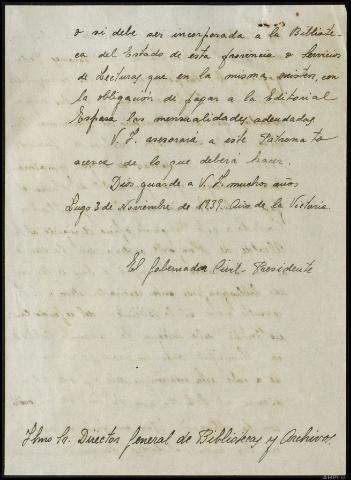 o si debe ser incorporada a la Bibliote-
ca del Estado de esta provincia o Servicios
de Lecturas que en la misma existen, con
la obligación de pagar a la Editorial
Espasa las mensualidades adeudadas.
V. I. asesorará a este Patronato
acerca de lo que deberá hacer.
Dios guarde a V. I. muchos años
Lugo 3 de Noviembre de 1939. Año de la Victoria.
El Gobernador Civil-Presidente
Ilmo Sr. Director General de Bibliotecas y Archivos.